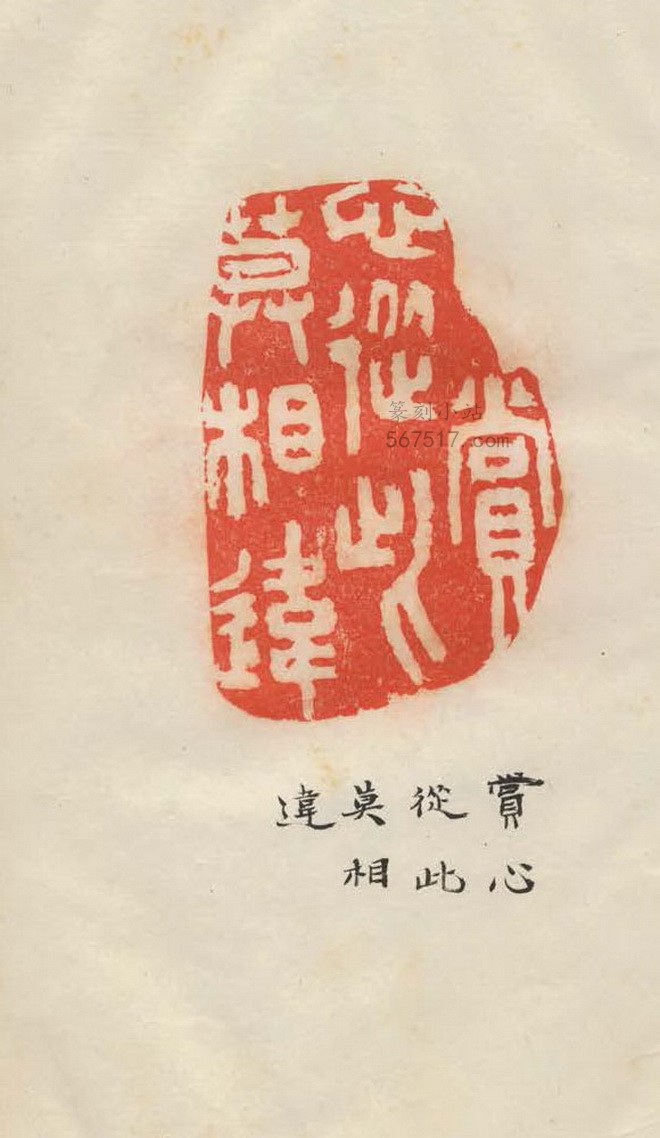 賞
心從此
莫相違
篆刻小站
567517.com
賞心
從此
莫相
違